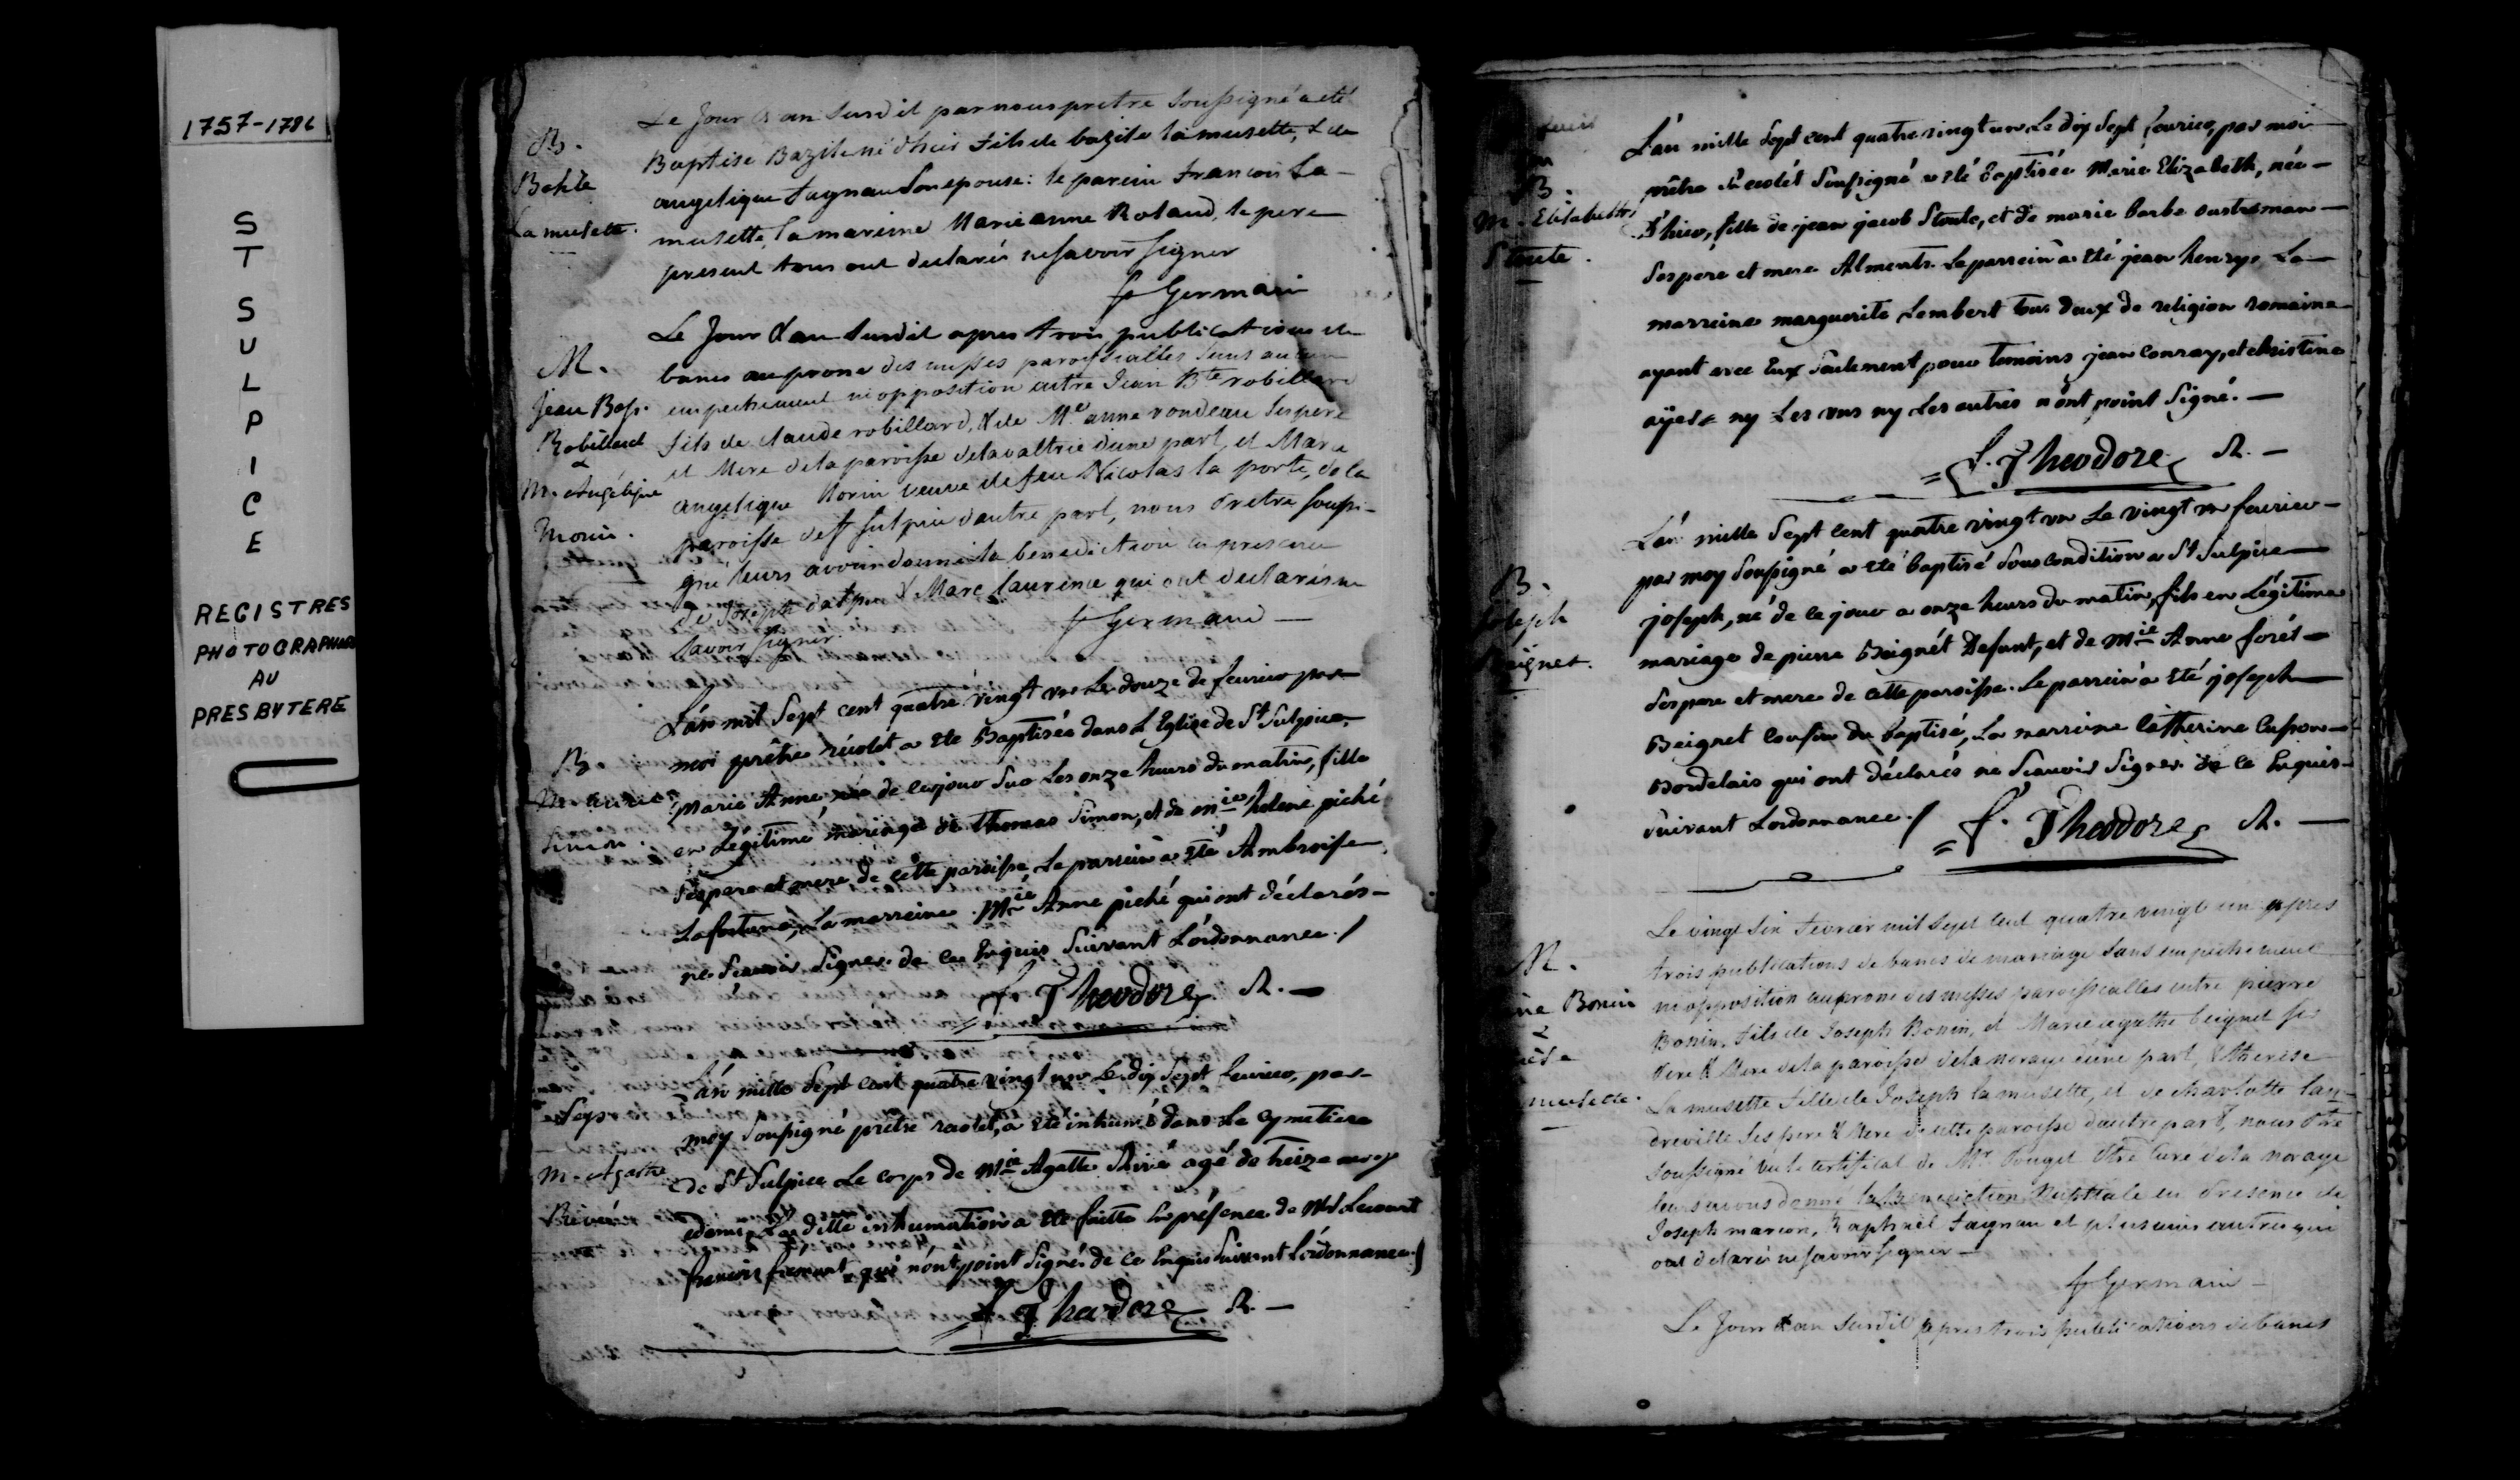 1757-1786
ST SULPICE
REGISTRES
PHOTOGRAPHIES
AU
PRESBYTERE
Le Jour & an Susdit par nous pretre Soussigné a eté
B.
Baptise Bazile né d'hier fils de bazile lamusette, & de
Bazile
angelique fagnan Son epouse: le parein francois La-
La musette.
musette, la mareine Marie anne Roland, le pere
present tous ont declarés ne savoir signer
f Germain
Le Jour & an Susdit apres trois publications de
M.
bancs au prone des messes paroissialles sans aucun
Jean Bap.
empechement ni opposition entre Jean Bte robillard
Robillard
fils de claude robillard, & de Me anne rondeau Ses pere
&
et Mere de la paroisse de lavaltrie d'une part, et Marie
M. Angélique
angelique Morin veuve de feu Nicolas la porte, de la
Morin.
paroisse de st Sulpice d'autre part, nous Pretre Soussi-
gné leurs avons donné la benediction en presence
de Joseph & Marc laurence qui ont declarés ne
Savoir signer.
f Germain
L'án mil Sept cent quatre vingt un Le douze de feurier par
B.
moi prêtre récolét a eté Baptisée dans L'Eglise de St Sulpice,
M. anne
Marie Anne née de ce jour Sur Les onze heures du matin, fille
Simon.
en Légitime mariage de Thomas Simon, et de Mie helene piché
Ses pere et mere de cette paroisse Le parrein a eté Ambroise
Lafortune, La marreine Mie Anne piché qui ont déclarés
ne Scauoir Signer de ce Enquis Suivant L'ordonnance./
f. Theodore R.
L'án mille Sept cent quatre vingt un Le dix Sept feurier, par
Sep.
moy Soussigné prêtre recolet, a eté inhumé dans Le Cymetiere
M. Agathe
de St Sulpice Le corps de Mie Agathe Rivié agé de treize mois
Riviée
edemi, La ditte inhumation a eté faitte En présence de
francois fremont qui n'ont point Signés de ce Enquis Suivant L'ordonnance./
f Theodore R.
L'án mille Sept cent quatre vingt un Le dix Sept feurier, par moi
B.
prêtre Récolét Soussigné a eté baptisée Marie Elizabeth, née
M. Elisabeth
d'hier, fille de jean jacob Stoute, et de marie barbe
Stoute.
Ses pere et mere Le parrein a eté jean henry, La
marreine marguerite Lembert tous deux de religion romaine
ayant avec Eux Seulement pour temoins jean Conray, et christine
ny Les uns ny Les autres n'ont point Signé.
f. Theodore R.
L'án mille Sept cent quatre vingt un Le vingt un feurier
par moy Soussigné a eté baptisé Sous condition a St Sulpice
B.
joseph, né de ce jour a onze heures du matin, fils en Légitime
Joseph
mariage de pierre Beignét Defunt, et de Mie Anne forét
Beignet.
Ses pere et mere de cette paroisse. Le parrein a eté joseph
Beignet Cousin du baptisé, La marreine Catherine
Bordelais qui ont déclarés ne Scauoir Signer de ce Enquis
suivant L'ordonnance./ f. Theodore R.
Le vingt Six fevrier mil Sept cent quatre vingt un apres
M.
trois publications de bancs de mariage Sans empechement
Bonin
ni opposition au prone des messes paroissialles entre pierre
&
Bonin, fils de Joseph Bonin, et Marie agathe beignet Ses
Pere & Mere de la paroisse de la noraye d'une part, & therese
musette.
La musette fille de Joseph la musette, et de charlotte lan-
dreville Ses pere & Mere de cette paroisse d'autre part, nous Ptre
Soussigné vu le certificat de Mr Pouget Ptre Curé de la noraye
leurs avons donné la benediction Nuptiale en Presence de
Joseph marion, Raphael fagnan et plusieurs autres qui
ont declarés ne Savoir signer
f Germain
Le Jour & an Susdit apres trois publications de bancs